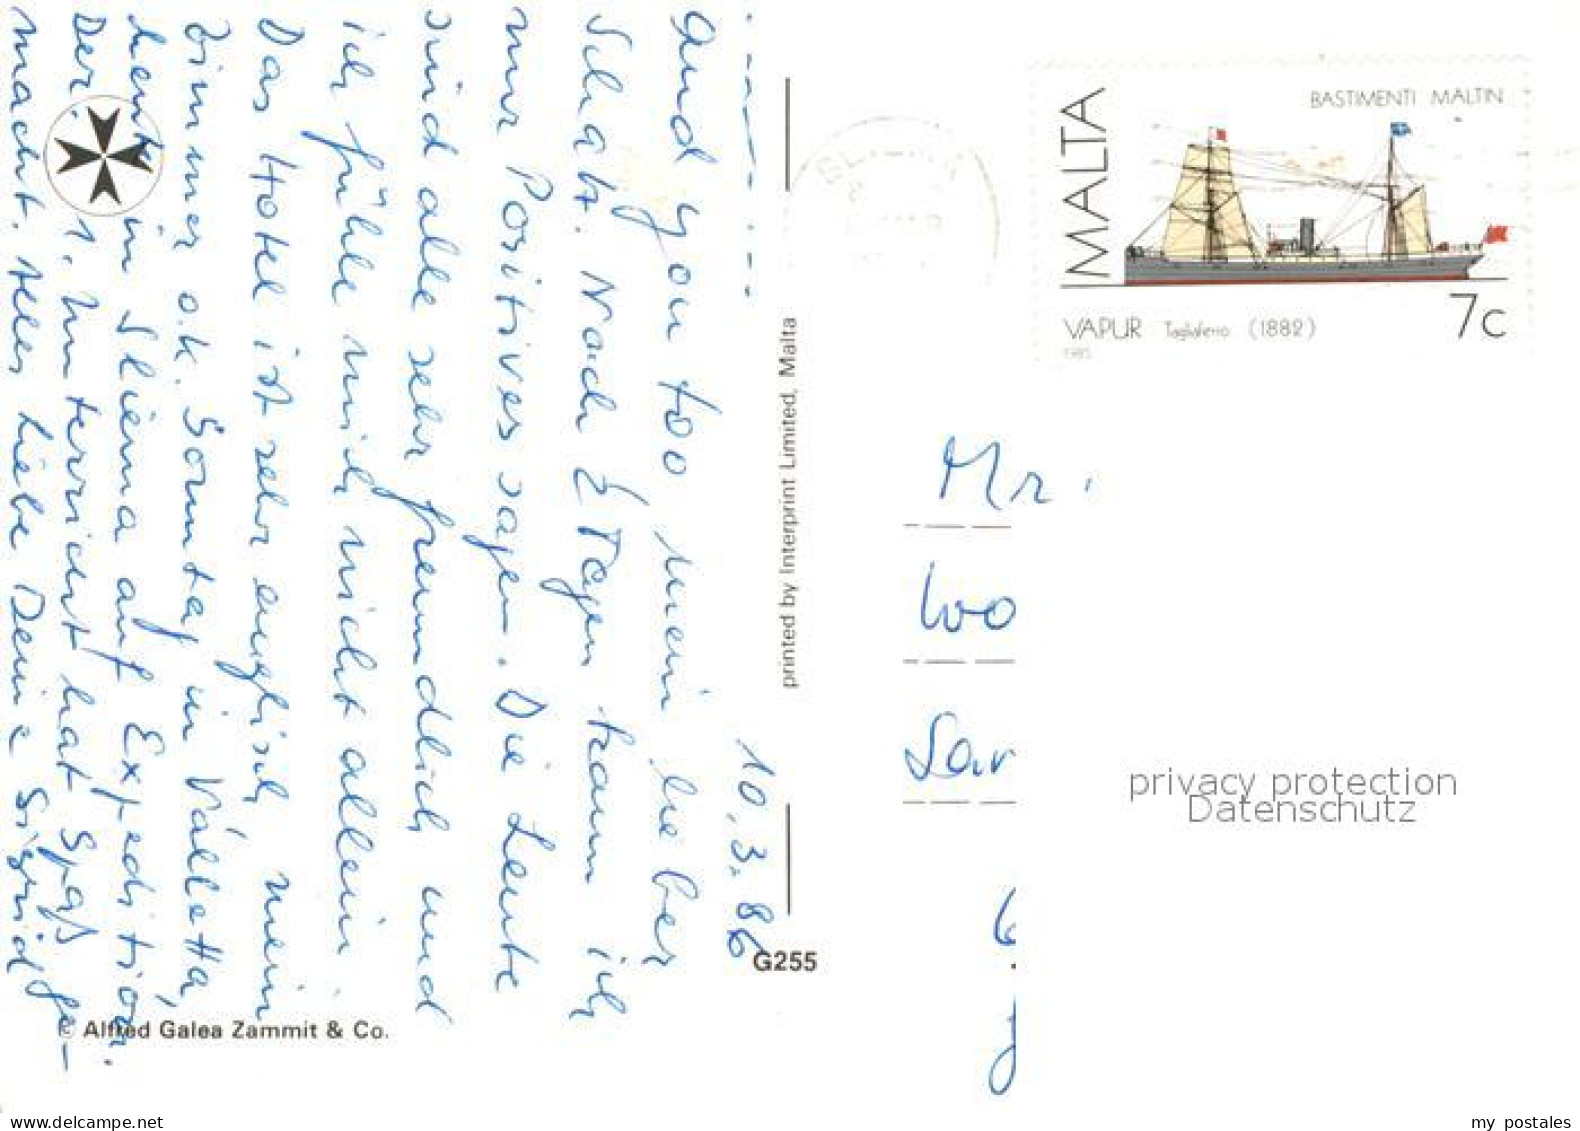 10.3.86
And you too mein lieber
Schatz. Nach 2 Tagen kann ich
nur Positives sagen. Die Leute
sind alle sehr freundlich und
ich fühle mich nicht allein.
Das Hotel ist sehr englisch, mein
Zimmer o.k. Sonntag in Válletta,
heute in Sliema auf Expedition.
Der 1. Unterricht hat Spaß ge-
macht. Alles Liebe Deine Sigrid
printed by Interprint Limited, Malta
G255
© Alfred Galea Zammit & Co.
MALTA
BASTIMENTI MALTIN
VAPUR Tagliaferro (1882)
7c
1985
SLIEMA
Mr.
Wo
Sar
privacy protection
Datenschutz
my postales